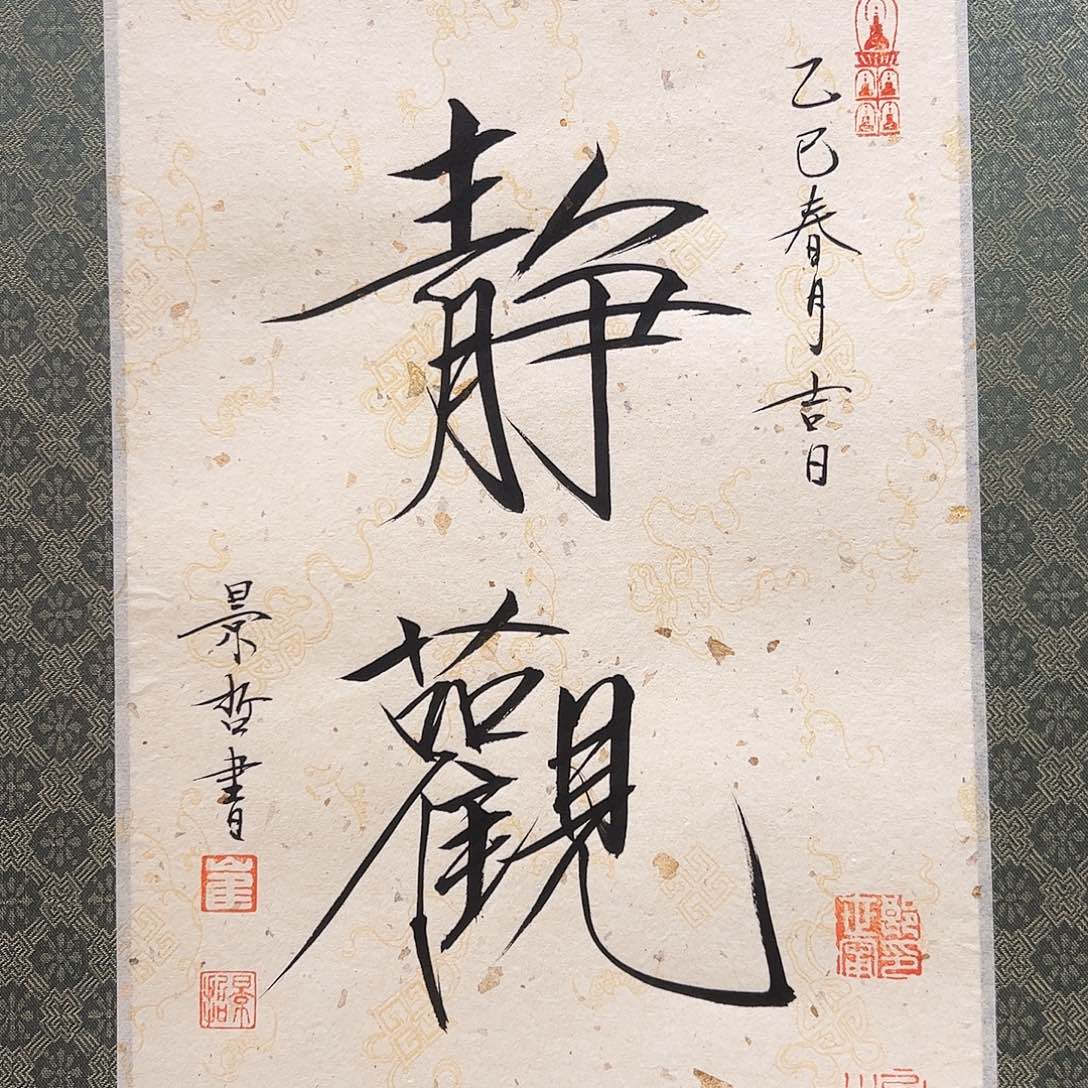 乙巳春月吉日
靜觀
景哲書
景哲